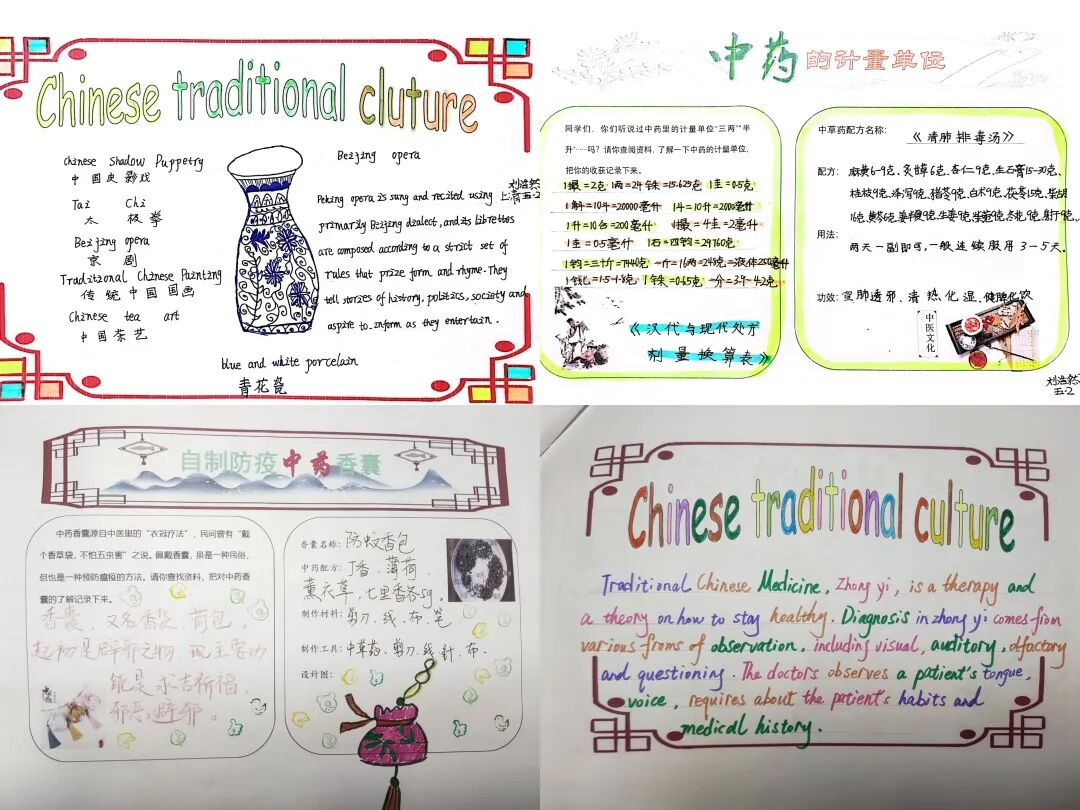 Chinese traditional cluture
Chinese Shadow Puppetry
中国皮影戏
Tai Chi
太极拳
Beijing opera
京剧
Traditional Chinese Painting
传统中国国画
Chinese tea art
中国茶艺
Beijing opera
Peking opera is sung and recited using
primarily Beijing dialect, and its librettos
are composed according to a strict set of
rules that prize form and rhyme. They
tell stories of history, politics, society and
aspire to inform as they entertain.
blue and white porcelain
青花瓷
中药的计量单位
同学们，你们听说过中药里的计量单位“三两”“半
升”……吗？请你查阅资料，了解一下中药的计量单位，
把你的收获记录下来。
1撮=2克 1两=24铢=15.625克 1圭=0.5克
1斛=10斗=20000毫升 1斗=10升=2000毫升
1升=10合=200毫升 1撮=4圭=2毫升
1圭=0.5毫升 1石=四钧=29760克
1钧=三十斤=7440克 一斤=16两=248克=液体250毫升
1钱匕=1.5-1.8克 1铢=0.65克 一分=3.9-4.2克
《汉代与现代处方
剂量换算表》
中草药配方名称：《清肺排毒汤》
配方：麻黄6-9克、炙甘草6克、杏仁9克、生石膏15-30克、
桂枝9克、泽泻9克、猪苓9克、白术9克、茯苓15克、柴胡
16克、黄芩6克、姜半夏9克、生姜9克、紫菀9克、冬花9克、射干9克、
用法：
两天一副即可，一般连续服用3-5天。
功效：宣肺透邪、清热化湿、健脾化饮
中医文化
五.2
自制防疫中药香囊
中药香囊源自中医里的“衣冠疗法”，民间曾有“戴
个香草袋，不怕五虫害”之说。佩戴香囊，虽是一种民俗，
但也是一种预防瘟疫的方法。请你查找资料，把对中药香
囊的了解记录下来。
香囊，又名香袋、荷包，
起初是辟邪之物，现主要功
能是求吉祈福，
香囊名称：防蚊香包
中药配方：丁香，薄荷，
薰衣草，七里香各5g。
制作材料：剪刀、线、布、笔。
制作工具：中草药、剪刀、线、针、布。
设计图：
Chinese traditional culture
Traditional Chinese Medicine, Zhong yi, is a therapy and
a theory on how to stay healthy. Diagnosis in zhong yi comes from
various froms of observation, including visual, auditory, olfactory
and questioning. The doctors observes a patient's tongue,
voice, requires about the patient's habits and
medical history.